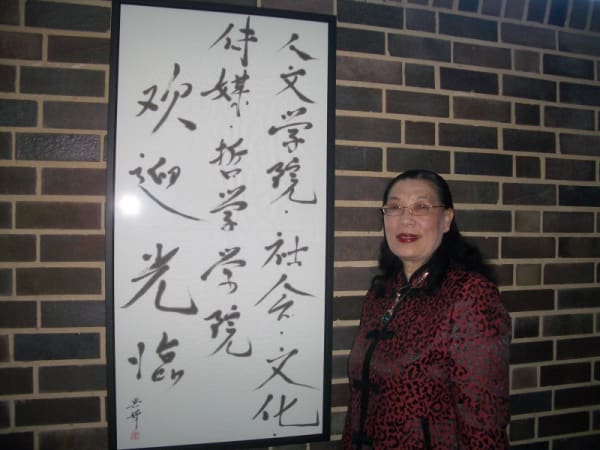 人文学院·社会·文化·
传媒·哲学学院
欢迎光临